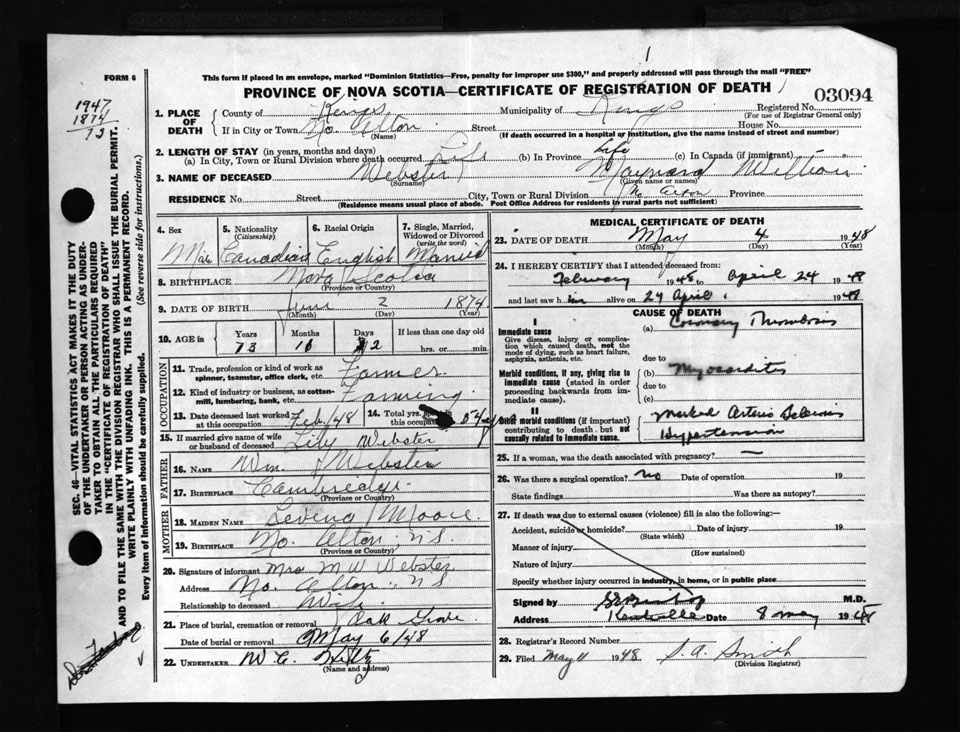 FORM 6
This form if placed in an envelope, marked "Dominion Statistics—Free, penalty for improper use $300," and properly addressed will pass through the mail "FREE"
PROVINCE OF NOVA SCOTIA—CERTIFICATE OF REGISTRATION OF DEATH
03094
1947
1874
73
1. PLACE OF DEATH
County of Kings Municipality of Kings Registered No.
(For use of Registrar General only)
If in City or Town No. Alton Street House No.
(Name) (If death occurred in a hospital or institution, give the name instead of street and number)
2. LENGTH OF STAY (in years, months and days)
(a) In City, Town or Rural Division where death occurred Life (b) In Province Life (c) In Canada (if immigrant)
3. NAME OF DECEASED Webster Maynard William
(Surname) (Given name or names)
RESIDENCE No. Street City, Town or Rural Division No. Alton Province
(Residence means usual place of abode. Post Office Address for residents in rural parts not sufficient)
4. Sex Male
5. Nationality (Citizenship) Canadian
6. Racial Origin English
7. Single, Married, Widowed or Divorced (write the word) Married
8. BIRTHPLACE Nova Scotia
(Province or Country)
9. DATE OF BIRTH June 2 1874
(Month) (Day) (Year)
10. AGE in Years Months Days If less than one day old
73 hrs. or min.
11. Trade, profession or kind of work as spinner, teamster, office clerk, etc. Farmer
12. Kind of industry or business, as cotton-mill, lumbering, bank, etc. Farming
13. Date deceased last worked at this occupation Feb/48
14. Total yrs. this occupation
15. If married give name of wife or husband of deceased Lily Webster
FATHER
16. NAME Wm. Webster
17. BIRTHPLACE Cambridge
(Province or Country)
MOTHER
18. MAIDEN NAME Levena Moore
19. BIRTHPLACE No. Alton, N.S.
(Province or Country)
20. Signature of informant Mrs M W Webster
Address No. Alton, N S
Relationship to deceased Wife
21. Place of burial, cremation or removal Oak Grove
Date of burial or removal May 6/48
22. UNDERTAKER W C Hiltz
(Name and address)
MEDICAL CERTIFICATE OF DEATH
23. DATE OF DEATH May 4 1948
(Month) (Day) (Year)
24. I HEREBY CERTIFY that I attended deceased from:
February 1948 to April 24 1948
and last saw him alive on 24 April 1948
CAUSE OF DEATH
I
Immediate cause
Give disease, injury or complication which caused death, not the mode of dying, such as heart failure, asphyxia, asthenia, etc.
(a) Coronary Thrombosis
due to
Morbid conditions, if any, giving rise to immediate cause (stated in order proceeding backwards from immediate cause).
(b) Myocarditis
due to
(c)
II
Other morbid conditions (if important) contributing to death but not causally related to immediate cause.
Marked Arterio Sclerosis
Hypertension
25. If a woman, was the death associated with pregnancy? —
26. Was there a surgical operation? no Date of operation 19
State findings Was there an autopsy?
27. If death was due to external causes (violence) fill in also the following:—
Accident, suicide or homicide? Date of injury 19
(State which)
Manner of injury
(How sustained)
Nature of injury
Specify whether injury occurred in industry, in home, or in public place
Signed by M.D.
Address Kentville Date 8 May 1948
28. Registrar's Record Number
29. Filed May 11 1948 S. A. Smith
(Division Registrar)
SEC. 46—VITAL STATISTICS ACT MAKES IT THE DUTY
OF THE UNDERTAKER OR PERSON ACTING AS UNDER-
TAKER TO OBTAIN ALL THE PARTICULARS REQUIRED
IN THE "CERTIFICATE OF REGISTRATION OF DEATH"
AND TO FILE THE SAME WITH THE DIVISION REGISTRAR WHO SHALL ISSUE THE BURIAL PERMIT.
WRITE PLAINLY WITH UNFADING INK. THIS IS A PERMANENT RECORD.
Every item of information should be carefully supplied. (See reverse side for instructions.)